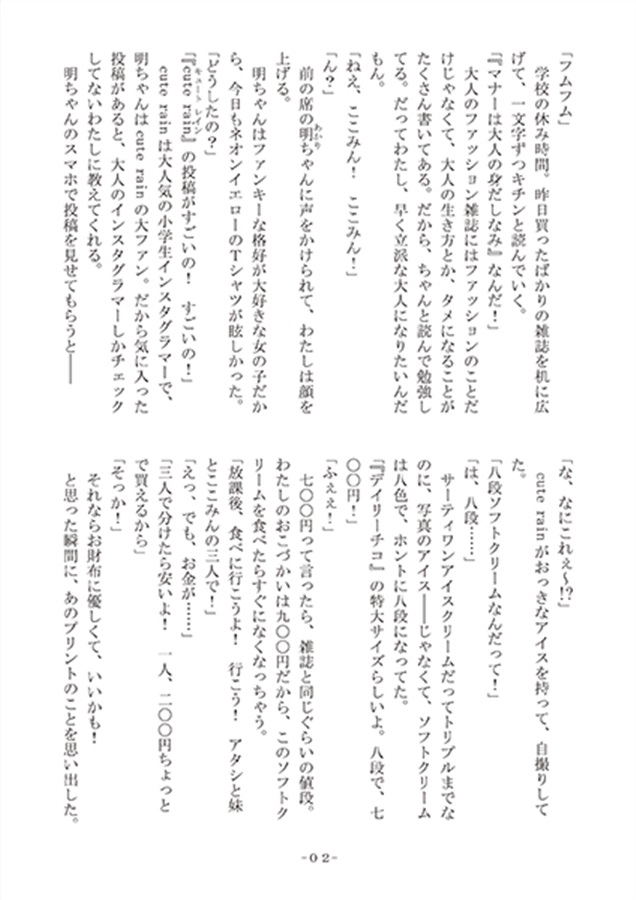 「フムフム」
学校の休み時間。昨日買ったばかりの雑誌を机に広
げて、一文字ずつキチンと読んでいく。
『マナーは大人の身だしなみ』なんだ！」
大人のファッション雑誌にはファッションのことだ
けじゃなくて、大人の生き方とか、タメになることが
たくさん書いてある。だから、ちゃんと読んで勉強し
てる。だってわたし、早く立派な大人になりたいんだ
もん。
「ねえ、ここみん！　ここみん！」
「ん？」
前の席の明ちゃんに声をかけられて、わたしは顔を
上げる。
明ちゃんはファンキーな格好が大好きな女の子だか
ら、今日もネオンイエローのTシャツが眩しかった。
「どうしたの？」
「『cute rain』の投稿がすごいの！　すごいの！」
cute rain は大人気の小学生インスタグラマーで、
明ちゃんは cute rain の大ファン。だから気に入った
投稿があると、大人のインスタグラマーしかチェック
してないわたしに教えてくれる。
明ちゃんのスマホで投稿を見せてもらうと――
「な、なにこれぇ～!?」
cute rain がおっきなアイスを持って、自撮りして
た。
「八段ソフトクリームなんだって！」
「は、八段……」
サーティワンアイスクリームだってトリプルまでな
のに、写真のアイス――じゃなくて、ソフトクリーム
は八色で、ホントに八段になってた。
「『デイリーチコ』の特大サイズらしいよ。八段で、七
〇〇円！」
「ふぇぇ！」
七〇〇円って言ったら、雑誌と同じぐらいの値段。
わたしのおこづかいは九〇〇円だから、このソフトク
リームを食べたらすぐになくなっちゃう。
「放課後、食べに行こうよ！　行こう！　アタシと妹
とここみんの三人で！」
「えっ、でも、お金が……」
「三人で分けたら安いよ！　一人、二〇〇円ちょっと
で買えるから」
「そっか！」
それならお財布に優しくて、いいかも！
と思った瞬間に、あのプリントのことを思い出した。
-02-